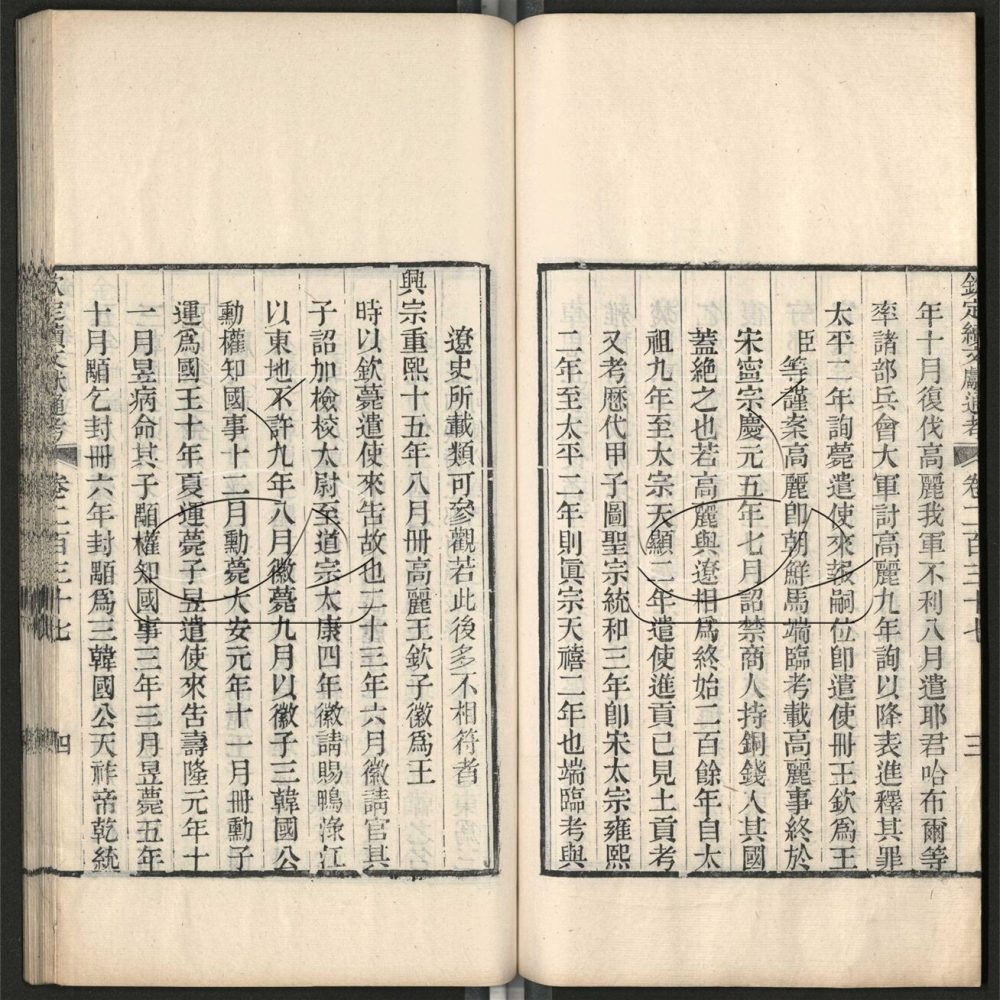 年十月復伐高麗我軍不利八月遣耶君哈布爾等
率諸部兵會大軍討高麗九年詢以降表進釋其罪
太平二年詢薨遣使來報嗣位卽遣使冊王欽爲王
臣等謹案高麗卽朝鮮馬端臨考載高麗事終於
宋寧宗慶元五年七月詔禁商人持銅錢入其國
蓋絶之也若高麗與遼相爲終始二百餘年自太
祖九年至太宗天顯二年遣使進貢已見土貢考
又考歷代甲子圖聖宗統和三年卽宋太宗雍熙
二年至太平二年則眞宗天禧二年也端臨考與
欽定續文獻通考 卷二百三十七 三
遼史所載類可參觀若此後多不相符者
興宗重熙十五年八月冊高麗王欽子徽爲王
時以欽薨遣使來告故也二十三年六月徽請官其
子詔加檢校太尉至道宗太康四年徽請賜鴨淥江
以東地不許九年八月徽薨九月以徽子三韓國公
勳權知國事十二月勳薨大安元年十一月冊勳子
運爲國王十年夏運薨子昱遣使來告壽隆元年十
一月昱病命其子顒權知國事三年三月昱薨五年
十月顒乞封冊六年封顒爲三韓國公天祚帝乾統
欽定續文獻通考 卷二百三十七 四